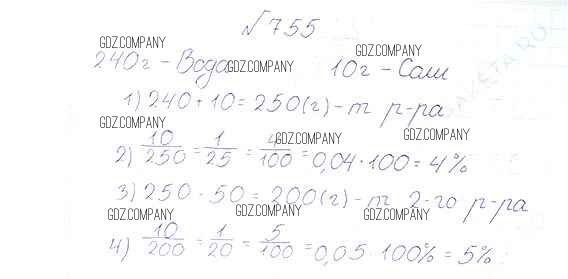 №755
GDZ.COMPANY GDZ.COMPANY
240г - Вода GDZ.COMPANY 10г - Соли
1) 240 + 10 = 250(г) - m р-ра
GDZ.COMPANY GDZ.COMPANY GDZ.COMPANY
2) 10/250 = 1/25 = 4/100 = 0,04 · 100 = 4%
3) 250 - 50 = 200(г) - m 2-го р-ра
GDZ.COMPANY GDZ.COMPANY GDZ.COMPANY
4) 10/200 = 1/20 = 5/100 = 0,05 · 100% = 5%